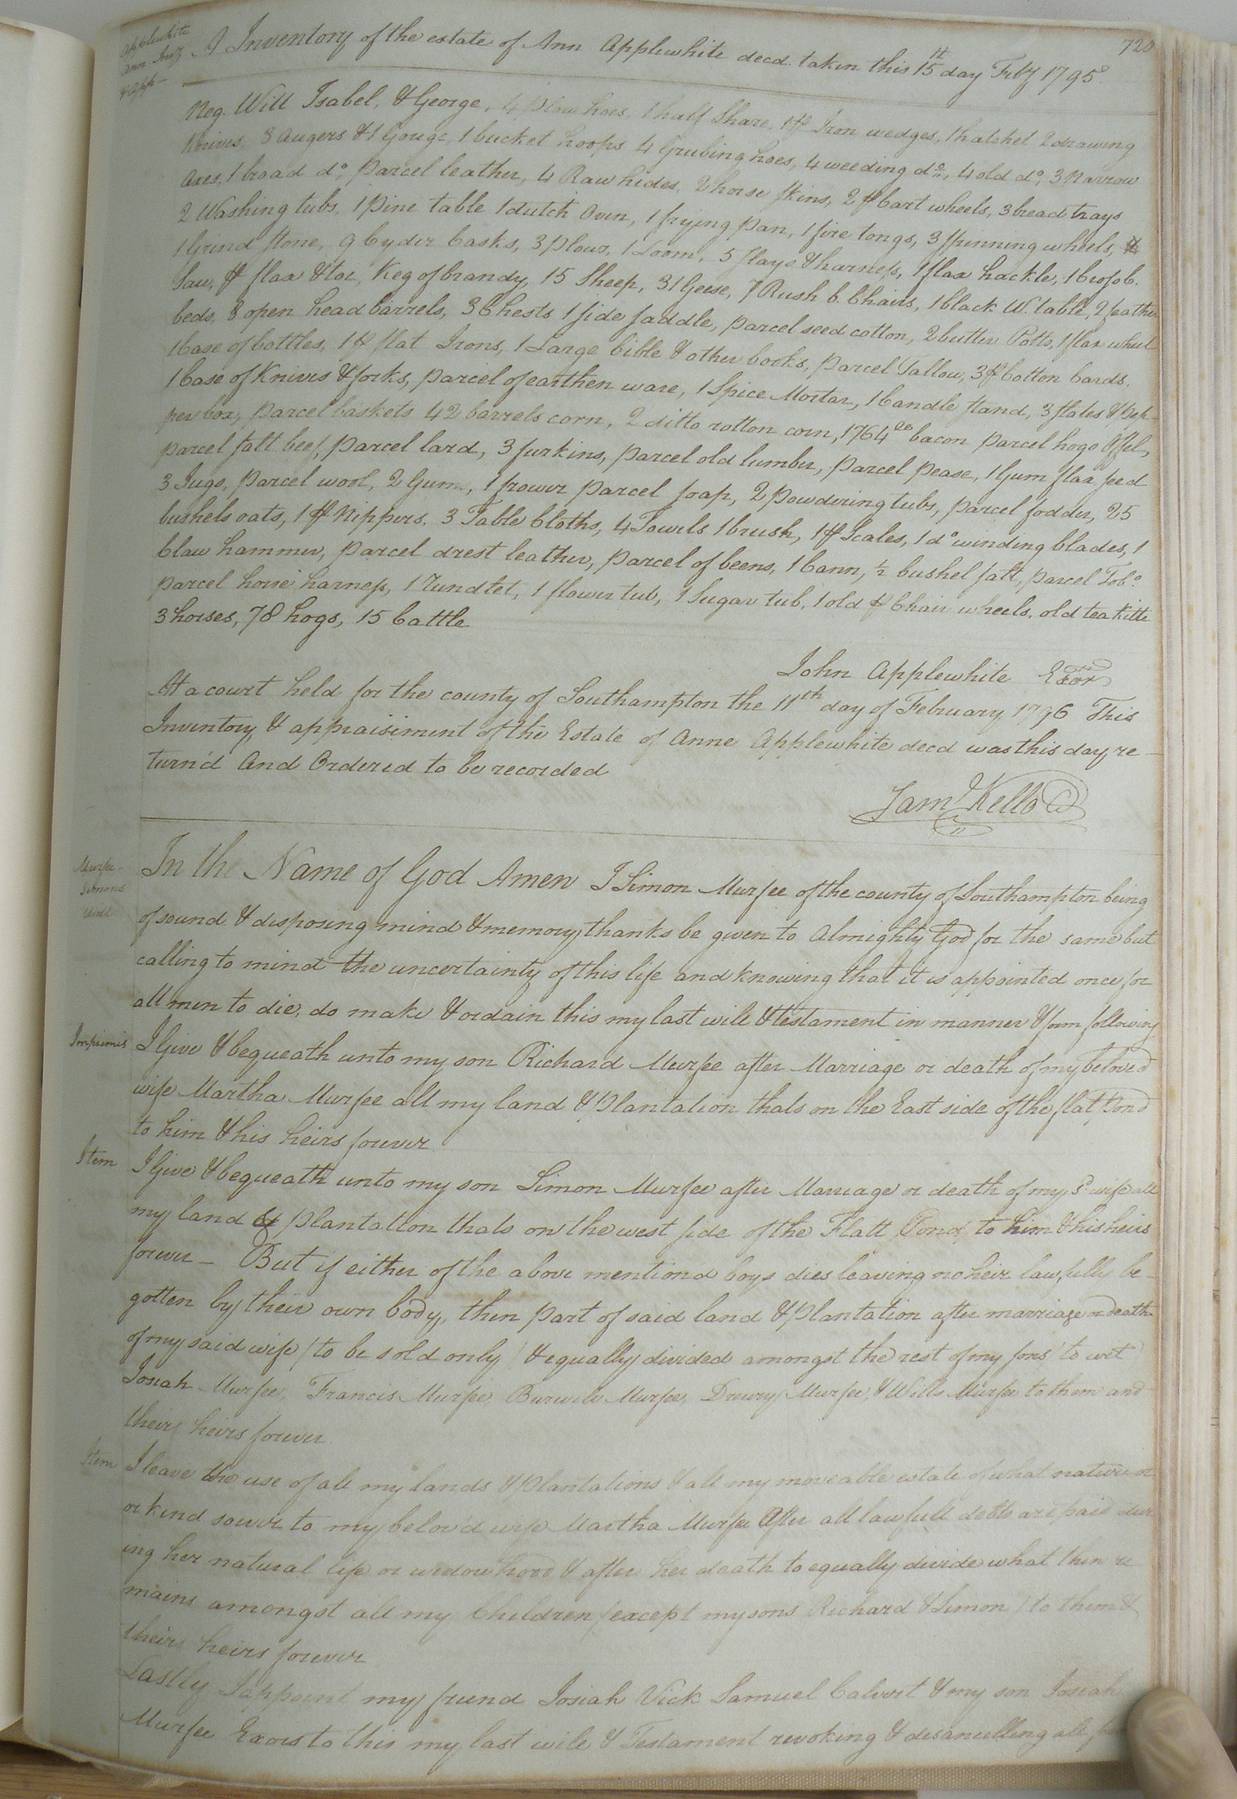 720
Applewhite
Anns Invy
& App—
A Inventory of the estate of Ann Applewhite decd. taken this 15th day Feby 1795
Neg. Will Isabel, & George, 4 plow hoes, 1 half Share, 1 pr Iron wedges, 1 hatchet 2 drawing
Knives, 8 Augers & 1 Gouge, 1 bucket hoops 4 Grubing hoes, 4 weeding do., 4 old do, 3 Narrow
Axes, 1 broad do, parcel leather, 4 Raw hides, 2 horse skins, 2 pr Cart wheels, 3 bread trays
2 Washing tubs, 1 pine table 1 dutch Oven, 1 frying pan, 1 fire tongs, 3 spinning wheels,
1 Grind stone, 9 Cyder Casks, 3 plows, 1 Loom, 5 slays & harness, 1 flax hackle, 1 Crosscb.
Saw, flax & toe, Keg of brandy, 15 Sheep, 31 Geese, 7 Rush b. Chairs, 1 black W. table, 2 feather
beds, 8 open head barrels, 3 Chests 1 side saddle, parcel seed cotton, 2 butter Potts, 1 flax wheel
1 Case of bottles, 1 pr flat Irons, 1 Large bible & other books, parcel Tallow, 3 pr Cotton Cards.
1 Case of Knives & forks, parcel of earthen ware, 1 Spice Mortar, 1 Candle stand, 3 slates &
per box, parcel baskets 42 barrels corn, 2 ditto rotton corn, 1764 lb bacon parcel hogs
parcel salt beef, parcel lard, 3 furkins, parcel old lumber, parcel pease, 1 Gum flax seed
3 Jugs, parcel wool, 2 Gums, 1 frower parcel soap, 2 powdering tubs, parcel fodder, 25
bushels oats, 1 pr Nippers, 3 Table Cloths, 4 Towels 1 brush, 1 pr Scales, 1 do winding blades, 1
Claw hammer, parcel drest leather, parcel of beens, 1 Cann, ½ bushel salt, parcel Tobo.
parcel horse harness, 1 Rundlet, 1 flower tub, 1 Sugar tub, 1 old pr Chair wheels, old tea kittle
3 horses, 78 hogs, 15 Cattle
John Applewhite Exor
At a court held for the county of Southampton the 11th day of February 1796 This
Inventory & appraisiment of the Estate of Anne Applewhite decd was this day re-
turn'd And Ordered to be recorded
Saml Kello
Murfee
Simons
Will
In the Name of God Amen I Simon Murfee of the county of Southampton being
of sound & disposing mind & memory, thanks be given to Almighty God for the same but
calling to mind the uncertainty of this life and knowing that it is appointed once for
all men to die, do make & ordain this my last will & testament in manner & form following
Imprimis I Give & bequeath unto my son Richard Murfee after Marriage or death of my beloved
wife Martha Murfee all my land & Plantation thats on the East side of the flat Pond
to him & his heirs forever
Item I Give & bequeath unto my son Simon Murfee after Marriage or death of my sd wife all
my land & plantation thats on the west side of the Flatt Pond to him & his heirs
forever— But if either of the above mentiond boys dies leaving no heir lawfully be-
gotten by their own body, then part of said land & Plantation after marriage or death
of my said wife (to be sold only) & equally divided amongst the rest of my sons to wit
Josiah Murfee, Francis Murfee Burwell Murfee, Drewry Murfee, & Wills Murfee to them and
their heirs forever
Item I leave the use of all my lands & Plantations & all my moveable estate of what nature or
or kind soever to my belov'd wife Martha Murfee After all lawfull debts are paid dur
ing her natural life or widowhood & after her death to equally divide what then re
mains amongst all my Children (except my sons Richard & Simon) to them &
their heirs forever
Lastly I appoint my friend Josiah Vick Samuel Calvert & my son Josiah
Murfee Exors to this my last will & Testament revoking & disanulling all